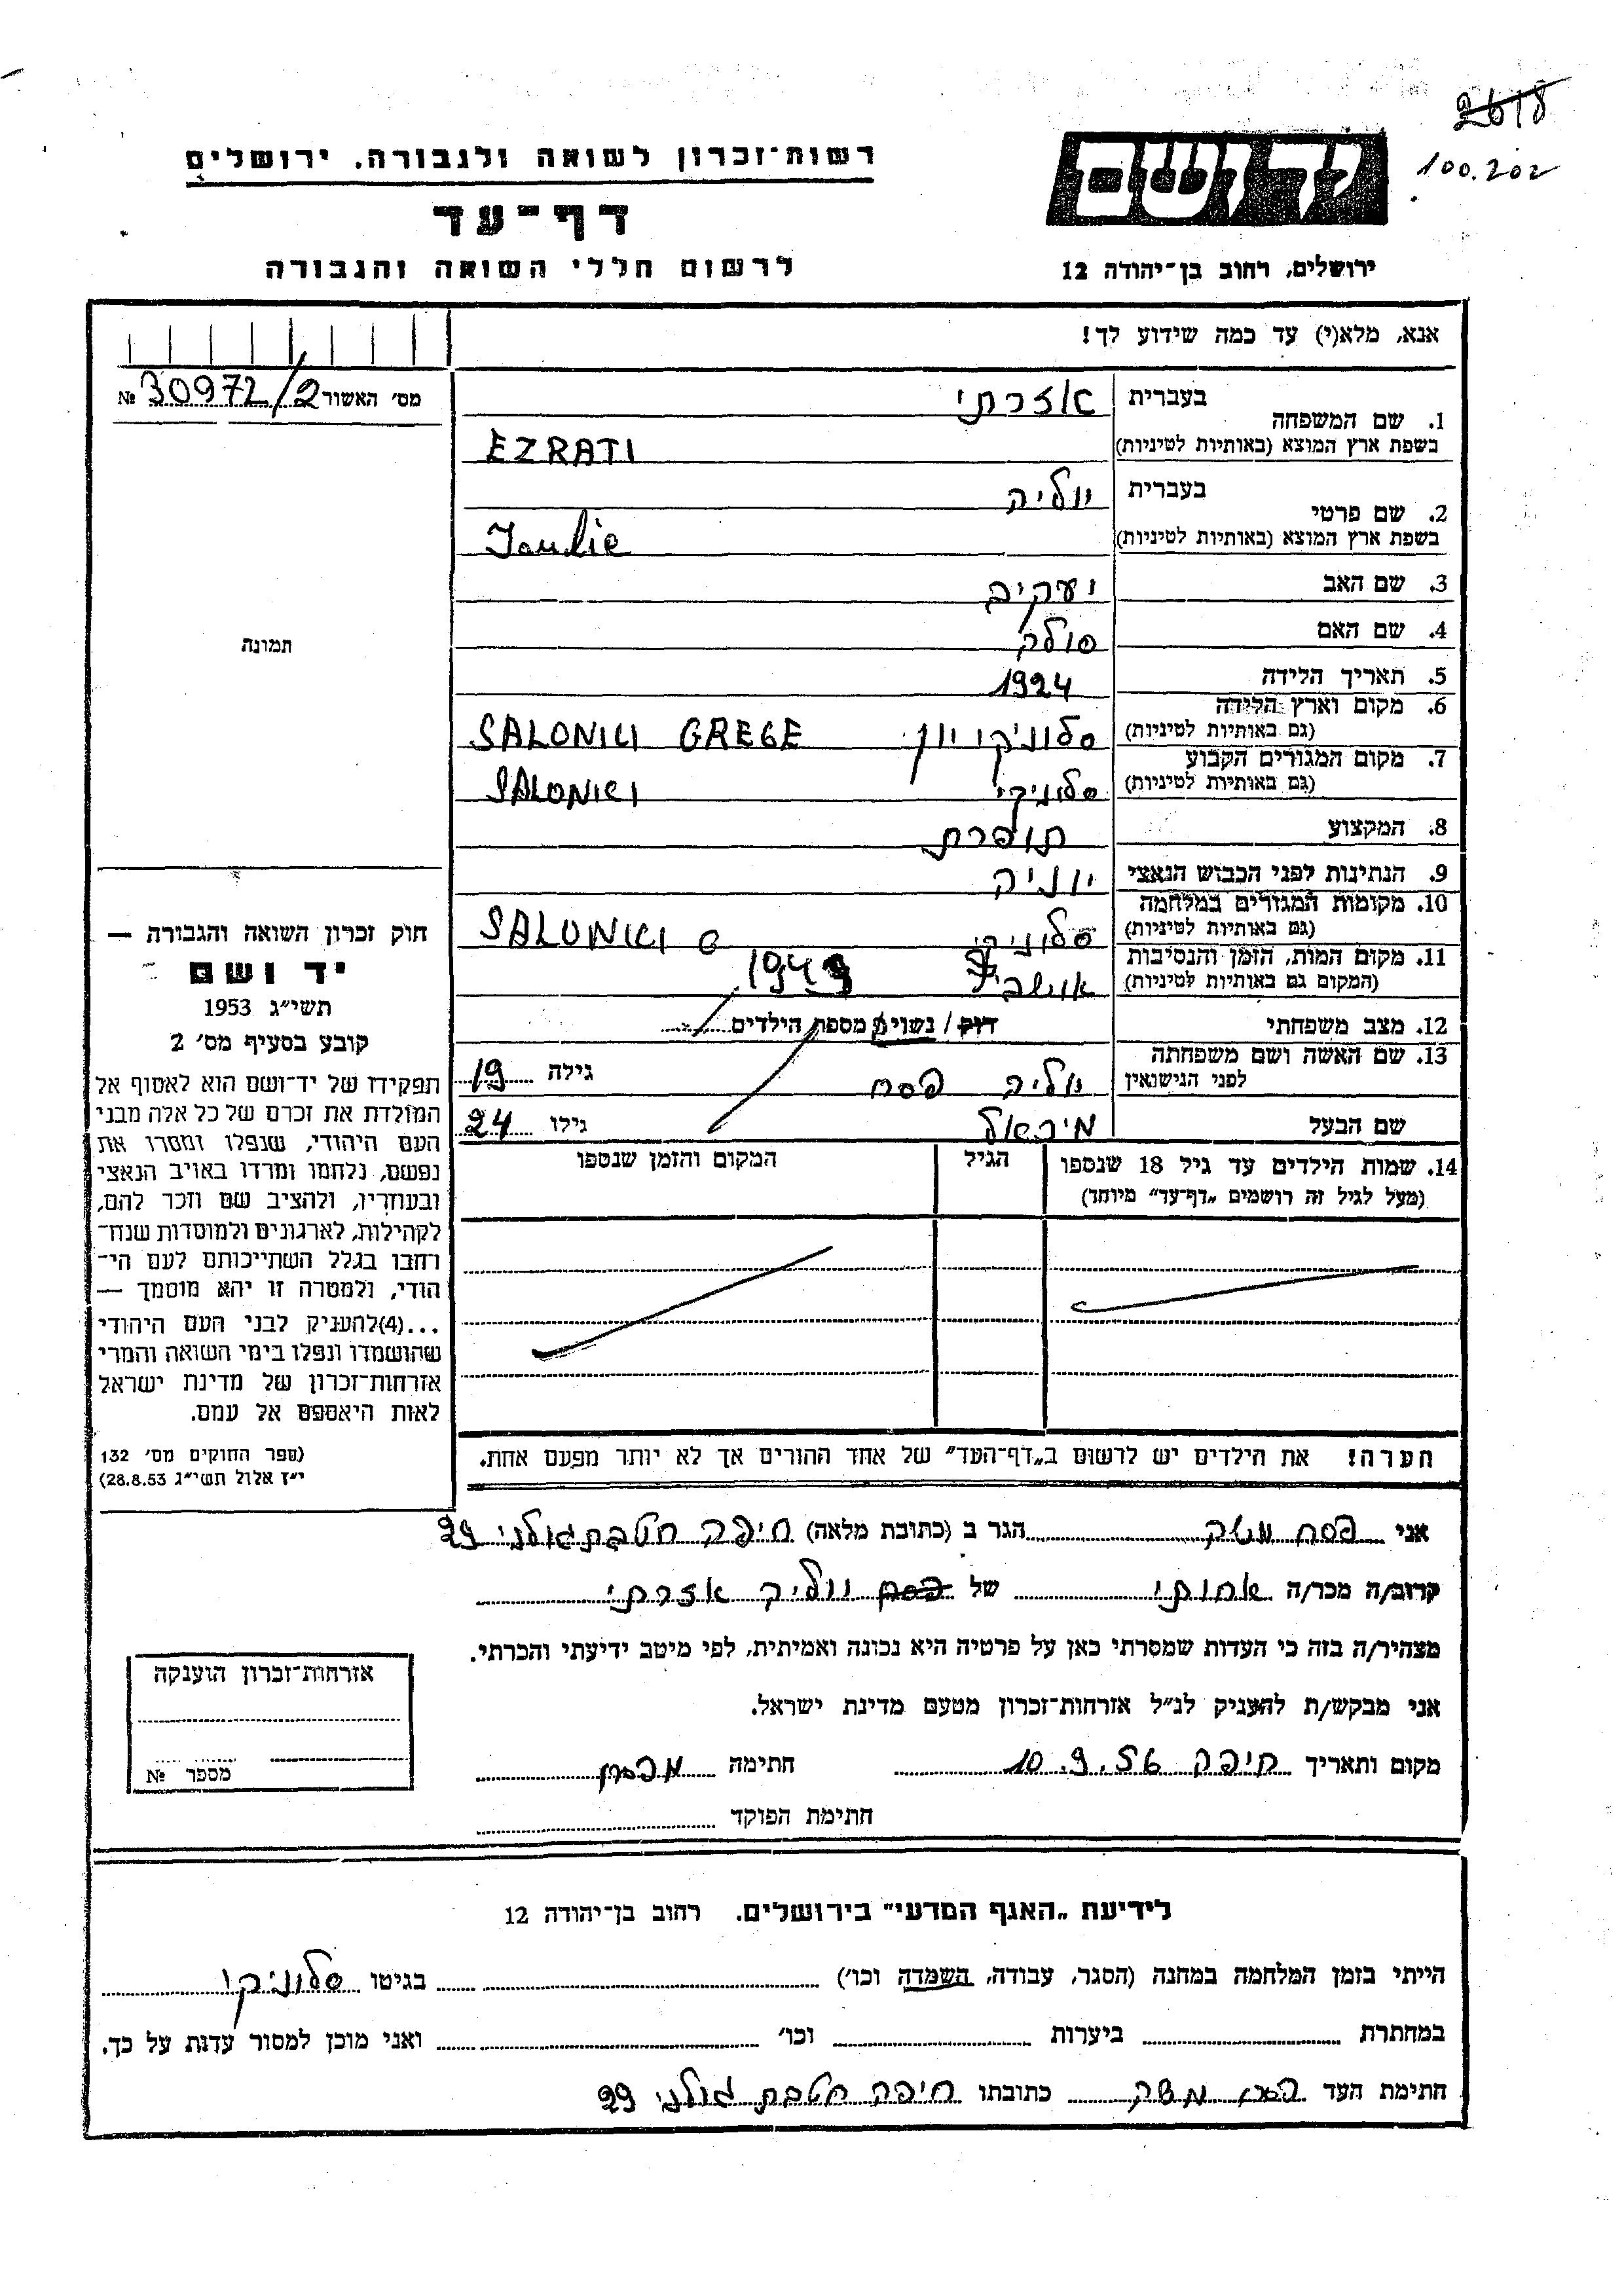 2618
100.202
יד ושם
רשות־זכרון לשואה ולגבורה. ירושלים
דף־עד
לרשום חללי השואה והגבורה
ירושלים, רחוב בן־יהודה 12
אנא, מלא(י) עד כמה שידוע לך!
מס׳ האשור 30972/2 №
תמונה
1. שם המשפחה בעברית אזרתי
בשפת ארץ המוצא (באותיות לטיניות) EZRATI
2. שם פרטי בעברית יוליה
בשפת ארץ המוצא (באותיות לטיניות) Joulie
3. שם האב יעקיב
4. שם האם סולה
5. תאריך הלידה 1924
6. מקום וארץ הלידה (גם באותיות לטיניות) סלוניקו יון SALONIKI GREGE
7. מקום המגורים הקבוע (גם באותיות לטיניות) סלוניקי SALONIKI
8. המקצוע תופרת
9. הנתינות לפני הכבוש הנאצי יוניה
10. מקומות המגורים במלחמה (גם באותיות לטיניות) סלוניקי SALONIKI
11. מקום המות, הזמן והנסיבות (המקום גם באותיות לטיניות) 1943
12. מצב משפחתי רוק / נשוי מספר הילדים
13. שם האשה ושם משפחתה לפני הנישואין יוליה פסח גילה 19
שם הבעל מיכאל גילו 24
14. שמות הילדים עד גיל 18 שנספו הגיל המקום והזמן שנספו
(מעל לגיל זה רושמים „דף־עד״ מיוחד)
הערה! את הילדים יש לרשום ב„דף־העד״ של אחד ההורים אך לא יותר מפעם אחת.
חוק זכרון השואה והגבורה —
יד ושם
תשי״ג 1953
קובע בסעיף מס׳ 2
תפקידו של יד־ושם הוא לאסוף אל
המולדת את זכרם של כל אלה מבני
העם היהודי, שנפלו ומסרו את
נפשם, נלחמו ומרדו באויב הנאצי
ובעוזריו, ולהציב שם וזכר להם,
לקהילות, לארגונים ולמוסדות שנח־
רחבו בגלל השתייכותם לעם הי־
הודי, ולמטרה זו יהא מוסמך —
...(4)להעניק לבני העם היהודי
שהושמדו ונפלו בימי השואה והמרי
אזרחות־זכרון של מדינת ישראל
לאות היאספם אל עמם.
(ספר החוקים מס׳ 132
י״ז אלול תשי״ג 28.8.53)
אני פסח משה הגר ב (כתובת מלאה) חיפה חטבת גולני 29
קרוב/ה מכר/ה אחותי של פסח יוליה אזרתי
מצהיר/ה בזה כי העדות שמסרתי כאן על פרטיה היא נכונה ואמיתית, לפי מיטב ידיעתי והכרתי.
אני מבקש/ת להעניק לנ״ל אזרחות־זכרון מטעם מדינת ישראל.
מקום ותאריך חיפה 10.9.56 חתימה
חתימת הפוקד
אזרחות־זכרון הוענקה
מספר №
לידיעת „האגף המדעי״ בירושלים. רחוב בן־יהודה 12
הייתי בזמן המלחמה במחנה (הסגר, עבודה, השמדה וכו׳) בגיטו סלוניקו
במחתרת ביערות וכו׳ ואני מוכן למסור עדות על כך.
חתימת העד פסח משה כתובתו חיפה חטבת גולני 29